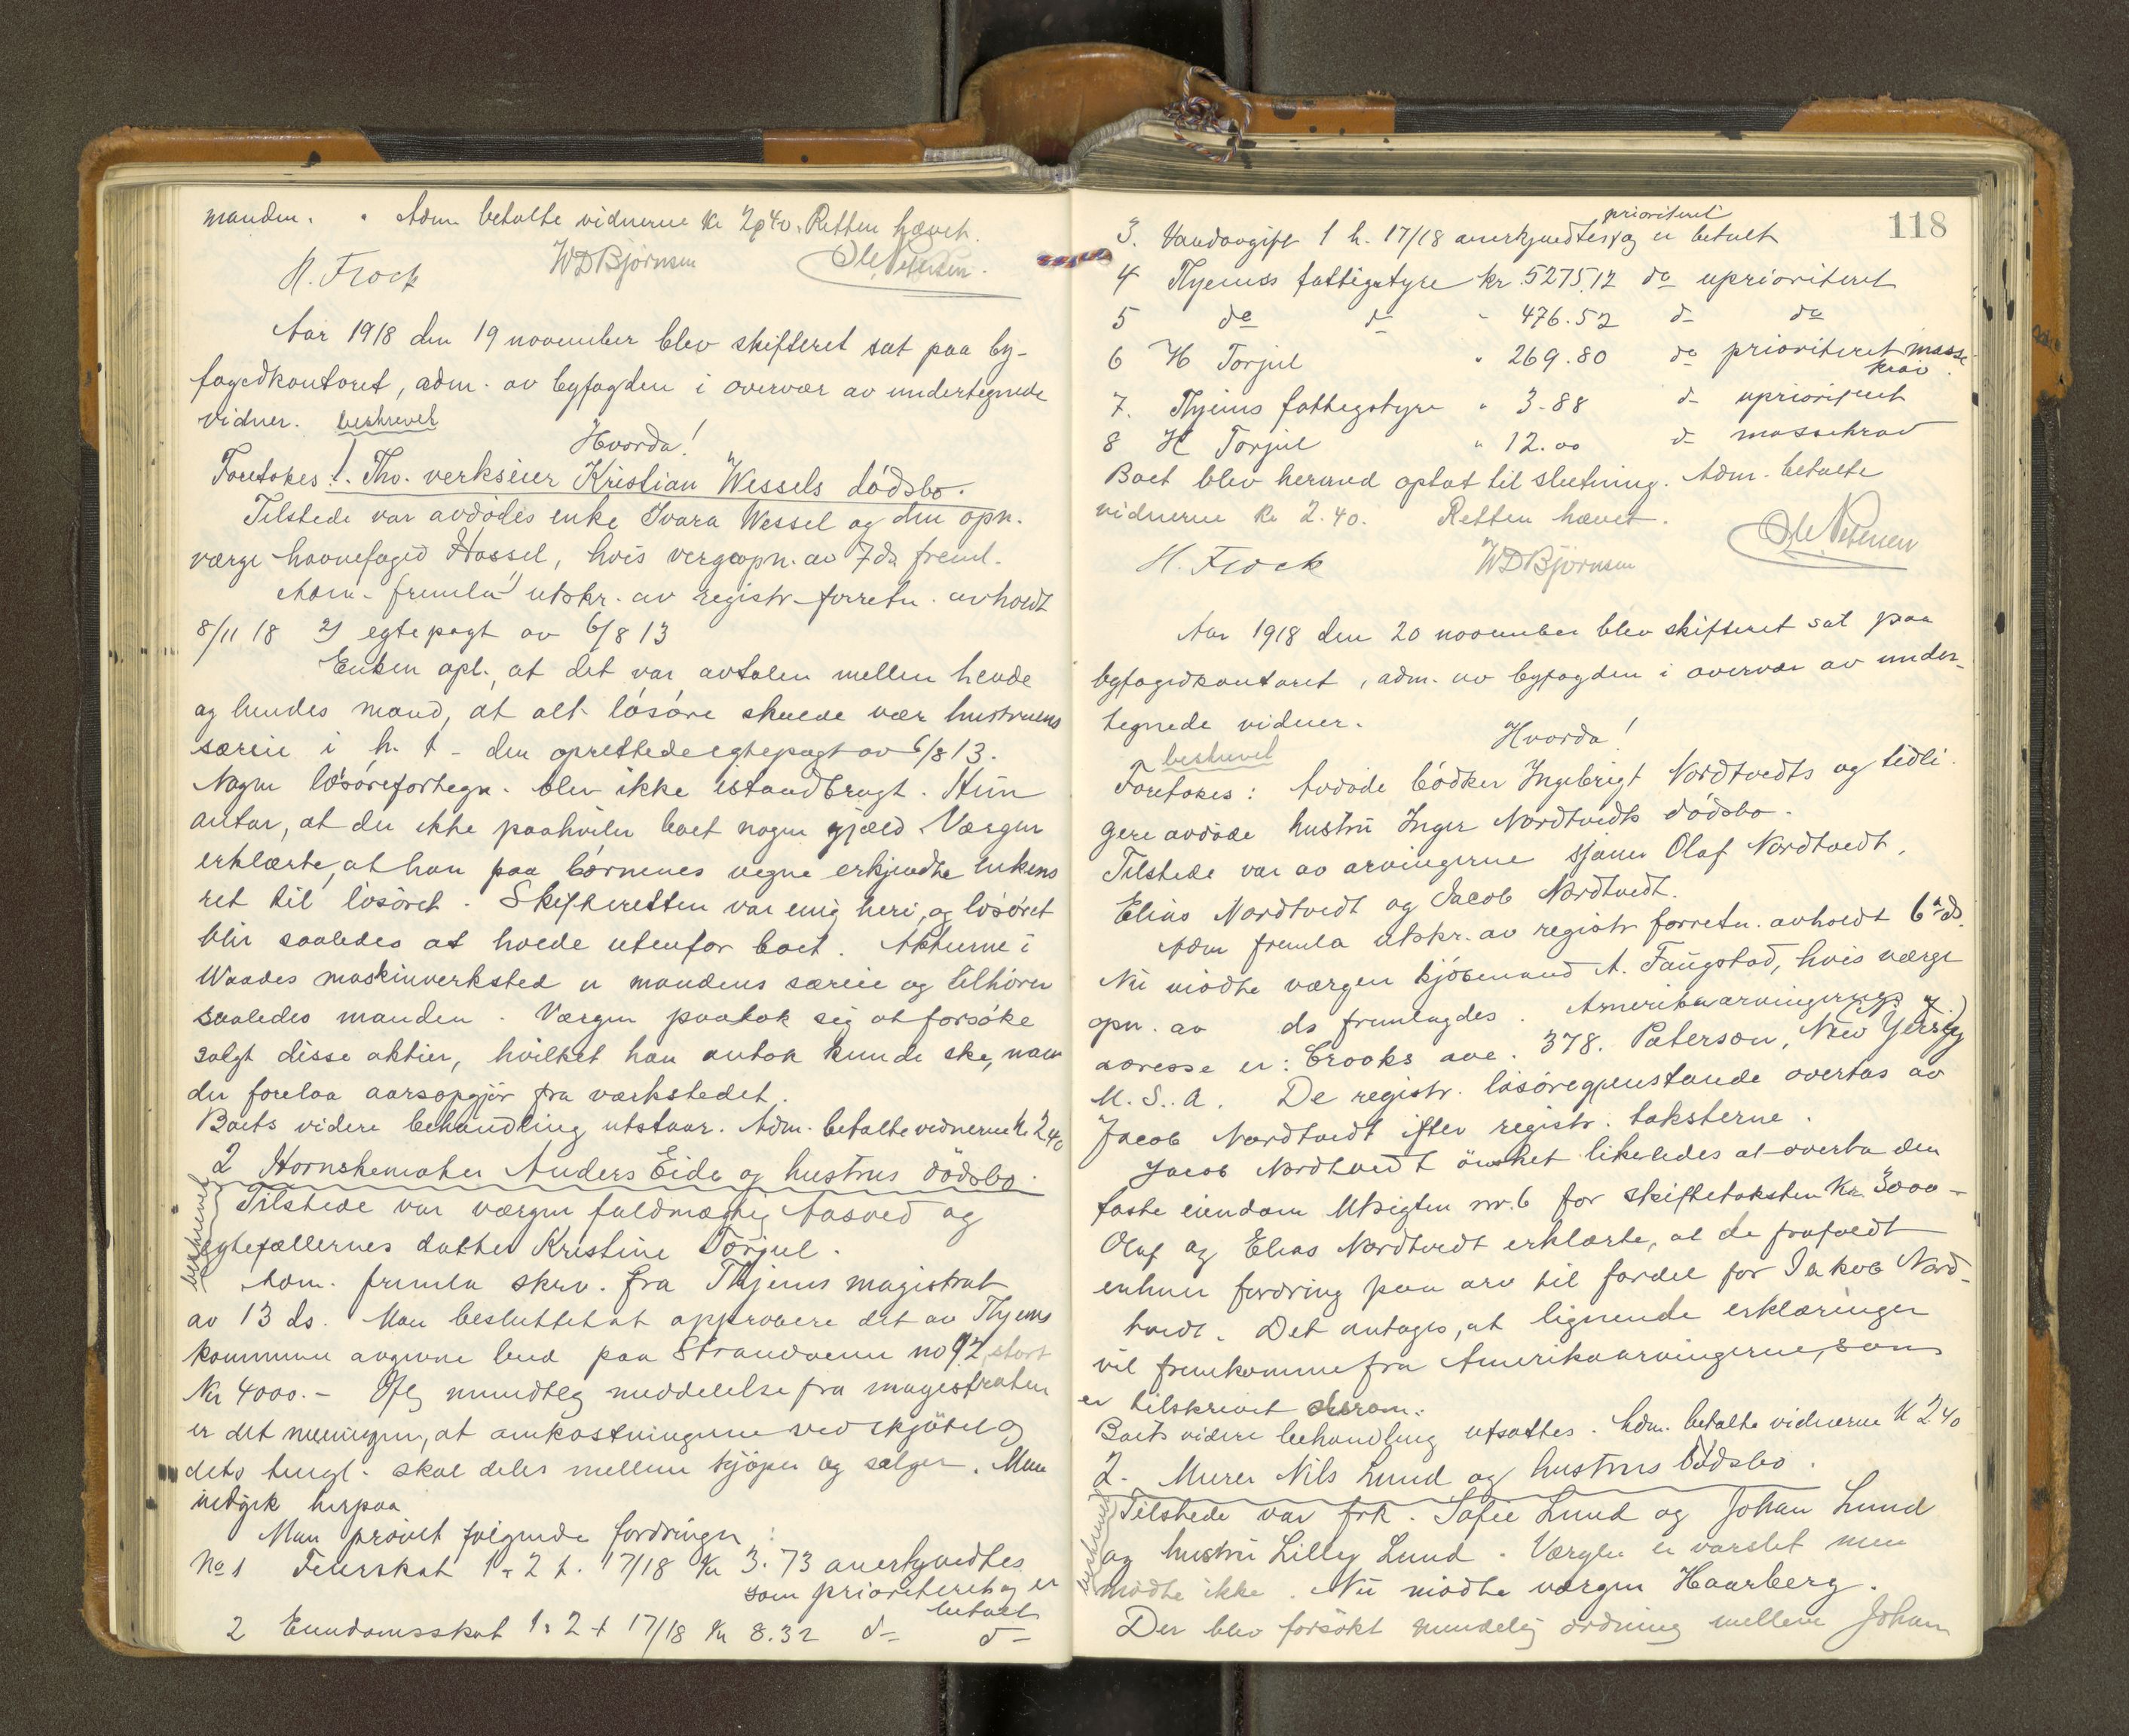 manden. " Adm. betalte vidnerne kr 2,40. Retten hævet.
H. Frock WDBjørnsen Ole Petersen.
Aar 1918 den 19 november blev skifteret sat paa by-
fogedkontoret, adm. av byfogden i overvær av undertegnede
vidner. beskrevet
Hvorda!
Foretokes: 1. Thv. verkseier Kristian Wessels dødsbo.
Tilstede var avdødes enke Ivara Wessel og den opn.
værge havnefoged Hassel, hvis vergeopn. av 7 ds freml.
Adm. fremla 1) utskr. av registr. forretn. avholdt
8/11 18 2) egtepagt av 6/8 13
Enken opl., at det var avtalen mellem hende
og hendes mand, at alt løsøre skulde vær hustruens
særeie i h. t. den oprettede egtepagt av 6/8 13.
Nogen løsørefortegn. blev ikke istandbragt. Hun
antar, at der ikke paahviler boet nogen gjæld. Værgen
erklærte, at han paa børnenes vegne erkjendte enkens
ret til løsøret. Skifteretten var enig heri, og løsøret
blir saaledes at holde utenfor boet. Aktierne i
Waades maskinverksted er mandens særeie og tilhører
saaledes manden. Værgen paatok sig at forsøke
solgt disse aktier, hvilket han antok kunde ske, naar
der forelaa aarsopgjør fra værkstedet.
Boets videre behandling utstaar. Adm. betalte vidnerne kr 2 40
2 Hornskemaker Anders Eide og hustrus dødsbo.
beskrevet
Tilstede var værgen fuldmægtig Aasved og
egtefællernes datter Kristine Torjul.
Adm. fremla skrv. fra Thjems magistrat
av 13 ds. Man besluttet at approbere det av Thjems
kommune avgivne bud paa Strandveien no 92, stort
Kr 4000.- Iflg mundtlig meddelelse fra magistraten
er det meningen, at omkostningerne ved skjøtet og
dets tingl. skal deles mellem kjøper og sælger. Man
indgik herpaa.
Man prøvet følgende fordringer:
No 1 Feierskat 1 & 2 t. 17/18 Kr 3.73 anerkjendtes
som prioriteret og er
betalt
2 Eiendomsskat 1 & 2 t 17/18 Kr 8.32 do do
118
prioriteret
3. Vandavgift 1 h. 17/18 anerkjendtes og er betalt
4 Thjems fattigstyre kr. 5275.12 do uprioriteret
5 do do " 476.52 do do
6 H Torjul " 269.80 do prioriteret masse-
krav.
7. Thjems fattigstyre " 3.88 do uprioriteret
8 H Torjul " 12.00 do massekrav
Boet blev hermed optat til slutning. Adm. betalte
vidnerne kr 2.40. Retten hævet.
H. Frock WDBjørnsen Ole Petersen
Aar 1918 den 20 november blev skifteret sat paa
byfogedkontoret, adm. av byfogden i overvær av under-
tegnede vidner.
Hvorda!
beskrevet
Foretokes: Avdøde bødker Ingebrigt Nordtvedts og tidli-
gere avdøde hustru Inger Nordtvedts dødsbo.
Tilstede var av arvingerne sjauer Olaf Nordtvedt,
Elias Nordtvedt og Jacob Nordtvedt.
Adm fremla utskr. av registr. forretn. avholdt 6te ds.
Nu mødte værgen kjøbmand A. Faugstad, hvis værge
opn. av ds fremlagdes. Amerikaarvingernes
adresse er: Crooks ave. 378. Paterson, New Yersey
U. S. A. De registr. løsøregjenstande overtas av
Jacob Nordtvedt efter registr. taksterne.
Jacob Nordtvedt ønsket likeledes at overta den
faste eiendom Utsigten nr. 6 for skiftetaksten Kr. 3000.-
Olaf og Elias Nordtvedt erklærte, at de frafaldt
enhver fordring paa arv til fordel for Jakob Nord-
tvedt. Det antages, at lignende erklæringer
vil fremkomme fra Amerikaarvingerne, som
er tilskrevet derom.
Boets videre behandling utsattes. Adm. betalte vidnerne K 2 40
2. Murer Nils Lund og hustrus dødsbo.
beskrevet
Tilstede var frk. Sofie Lund og Johan Lund
og hustru Lilly Lund. Værgen er varslet men
mødte ikke. Nu mødte værgen Haarberg.
Der blev forsøkt mindelig ordning mellem Johan